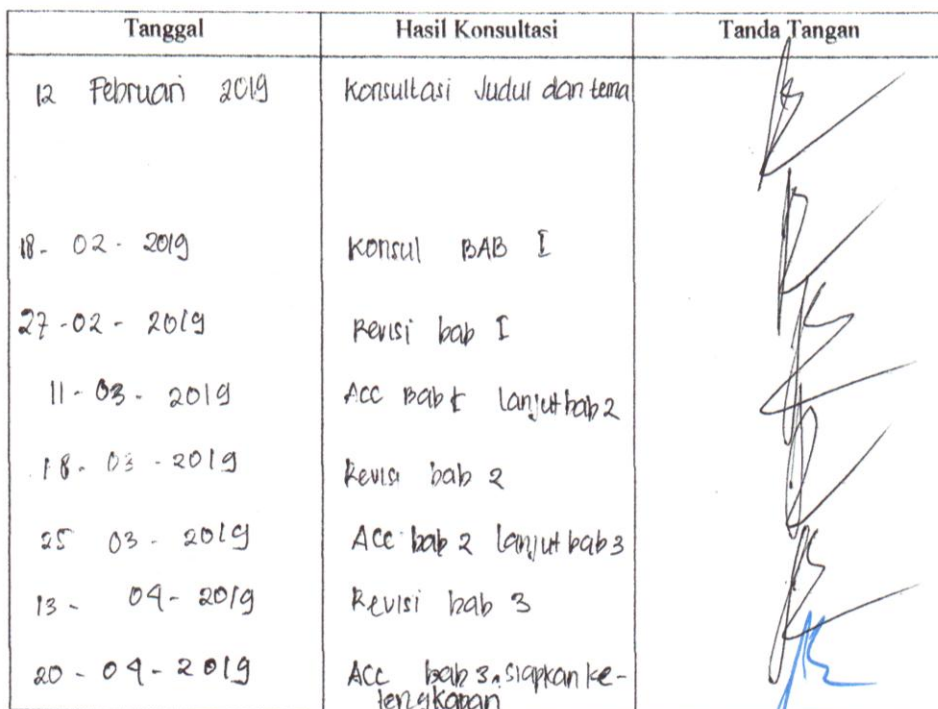 Tanggal Hasil Konsultasi Tanda Tangan
12 Februari 2019 Konsultasi Judul dan tema
18 - 02 - 2019 Konsul BAB I
27 - 02 - 2019 Revisi bab I
11 - 03 - 2019 ACC Bab I lanjut bab 2
18 - 03 - 2019 Revisi bab 2
25 03 - 2019 ACC bab 2 lanjut bab 3
13 - 04 - 2019 Revisi bab 3
20 - 04 - 2019 ACC bab 3, siapkan ke-
lengkapan